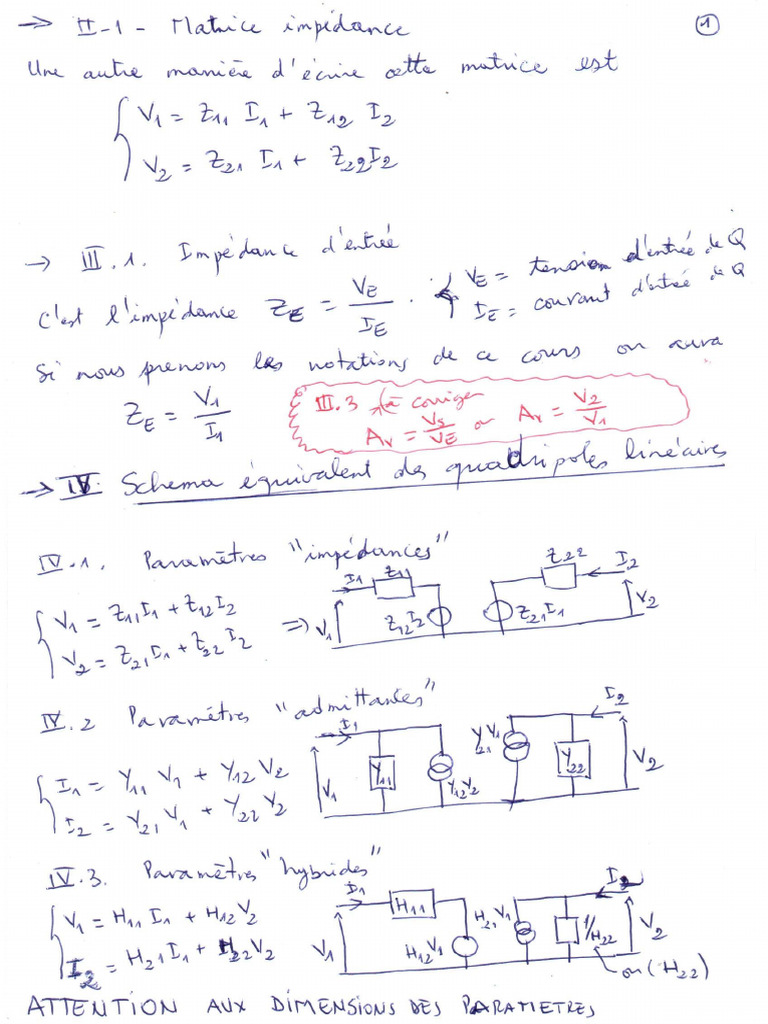 → II-1 - Matrice impédance ①
Une autre manière d'écrire cette matrice est
V1 = Z11 I1 + Z12 I2
V2 = Z21 I1 + Z22 I2
→ III.1. Impédance d'entrée
C'est l'impédance ZE = VE / IE . VE = tension d'entrée de Q
IE = courant d'entrée de Q
Si nous prenons les notations de ce cours on aura
ZE = V1 / I1
III.3 à corriger
Av = VS / VE or Av = V2 / V1
→ IV. Schema équivalent des quadripoles linéaires
IV.1. Paramètres "impédances"
V1 = Z11 I1 + Z12 I2
V2 = Z21 I1 + Z22 I2
=> V1 I1 Z11 Z12 I2 Z21 I1 Z22 I2 V2
IV.2 Paramètres "admittances"
I1 = Y11 V1 + Y12 V2
I2 = Y21 V1 + Y22 V2
V1 I1 Y11 Y12 V2 Y21 V1 Y22 I2 V2
IV.3. Paramètres "hybrides"
V1 = H11 I1 + H12 V2
I2 = H21 I1 + H22 V2
V1 I1 H11 H12 V1 H21 V1 1/H22 I2 V2
ou (H22)
ATTENTION AUX DIMENSIONS DES PARAMETRES